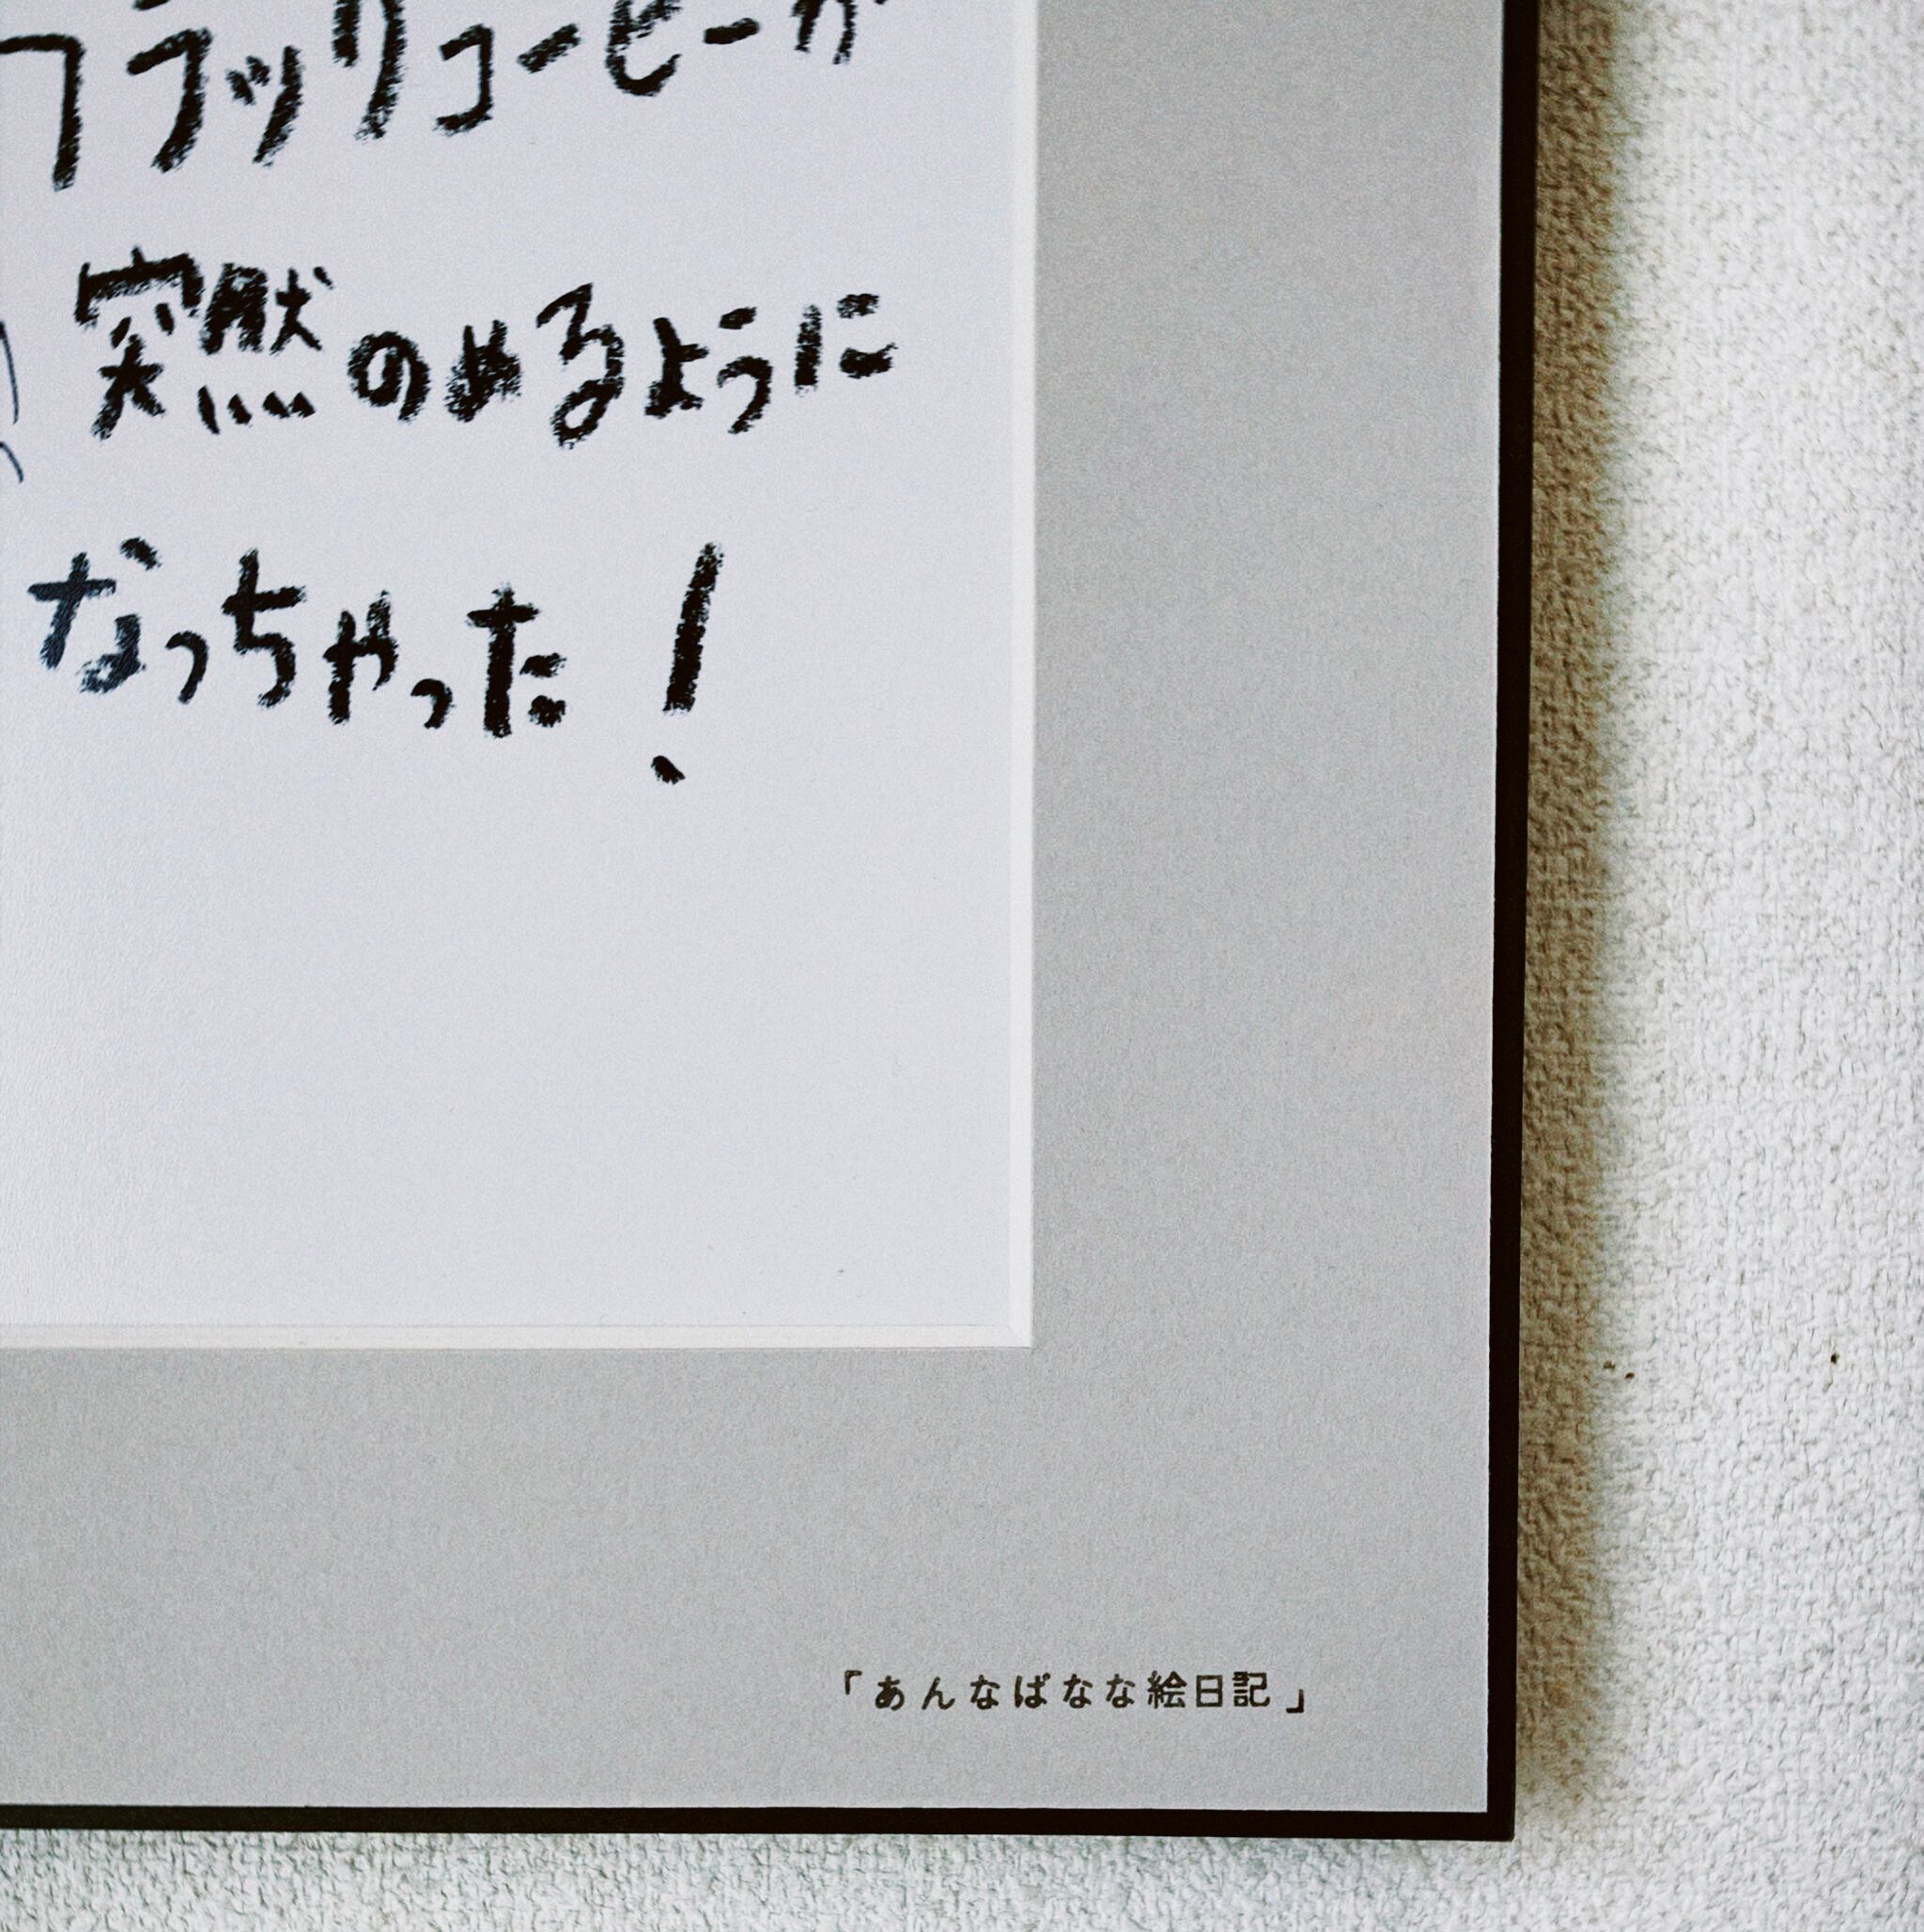 ブラックコーヒーが
突然のめるように
なっちゃった!
「あんなばなな絵日記」